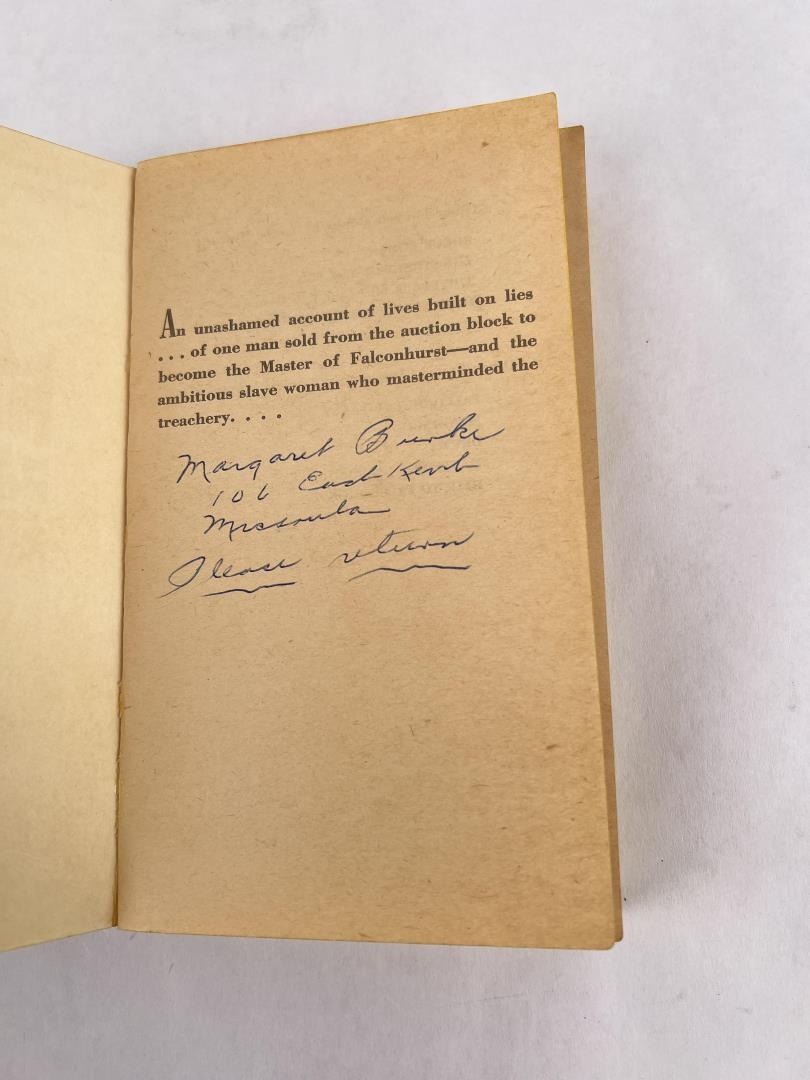 An unashamed account of lives built on lies
. . . of one man sold from the auction block to
become the Master of Falconhurst—and the
ambitious slave woman who masterminded the
treachery. . . .
Margaret Burke
106 East Kent
Missoula
Please return